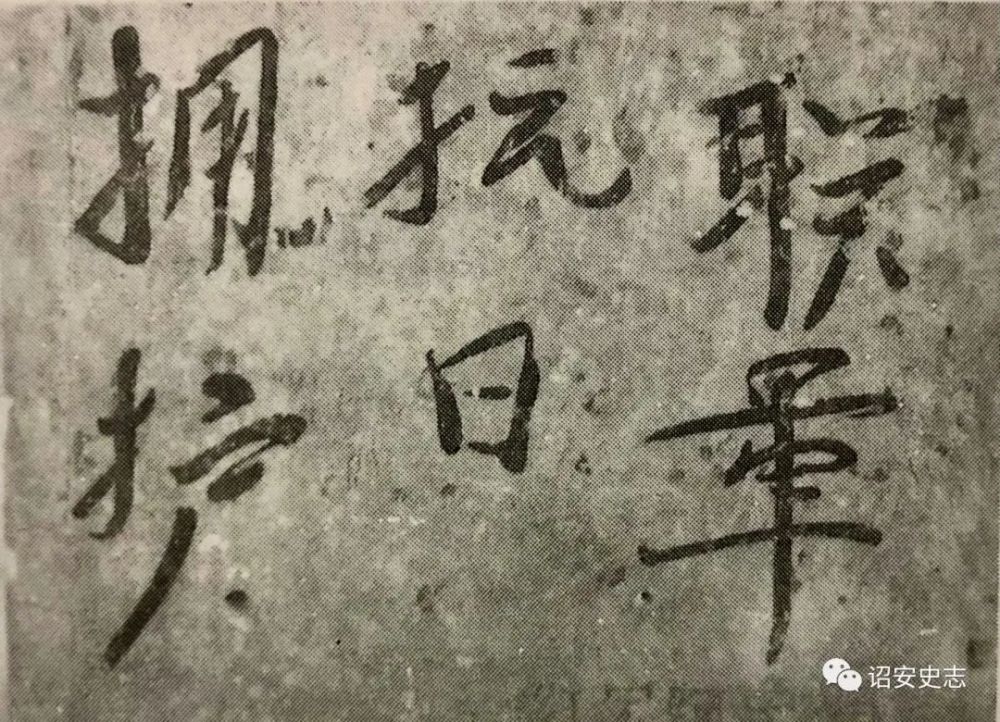 拥护
抗日
联軍
诏安史志